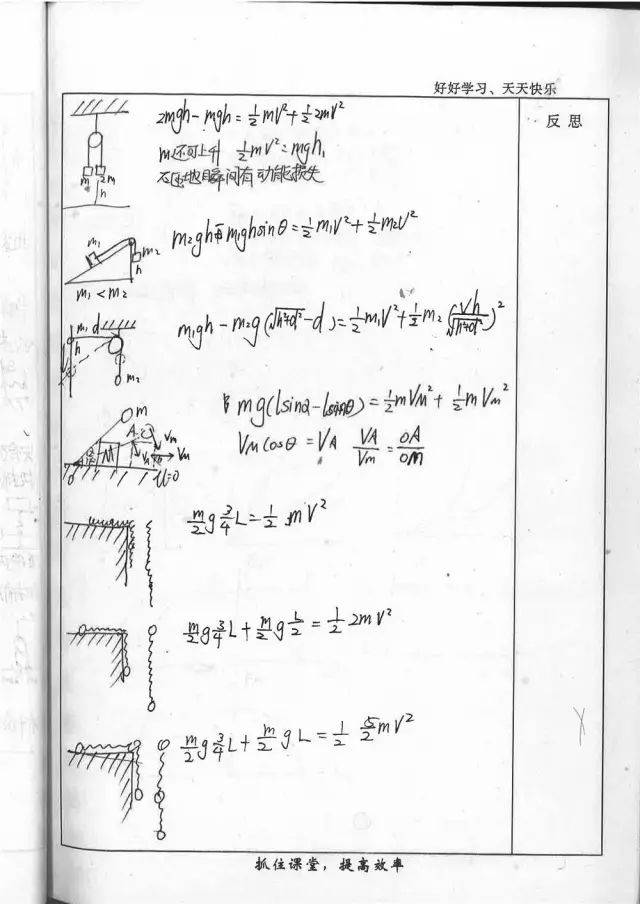 好好学习、天天快乐
反思
2mgh-mgh=½mV²+½2mV²
m还可上升 ½mV²=mgh₁
地瞬间有动能损失
m 2m
h
m₂gh m₁ghsinθ=½m₁V²+½m₂V²
m₁ m₂
h
m₁<m₂
m₁gh-m₂g(√(h²+d²)-d)=½m₁V²+½m₂(Vh/√(h²+d²))²
m₁ d
h
m₂
mg(Lsinα-Lsinθ)=½mVm²+½mVM²
VMcosθ=VA VA/Vm=OA/OM
m
A
M Vm
VA VM
O u=0
m/2 g 3/4 L=½mV²
m/2 g 3/4 L+m/2 g L/2=½2mV²
m/2 g 3/4 L+m/2 gL=½ 5/2 mV²
抓住课堂，提高效率